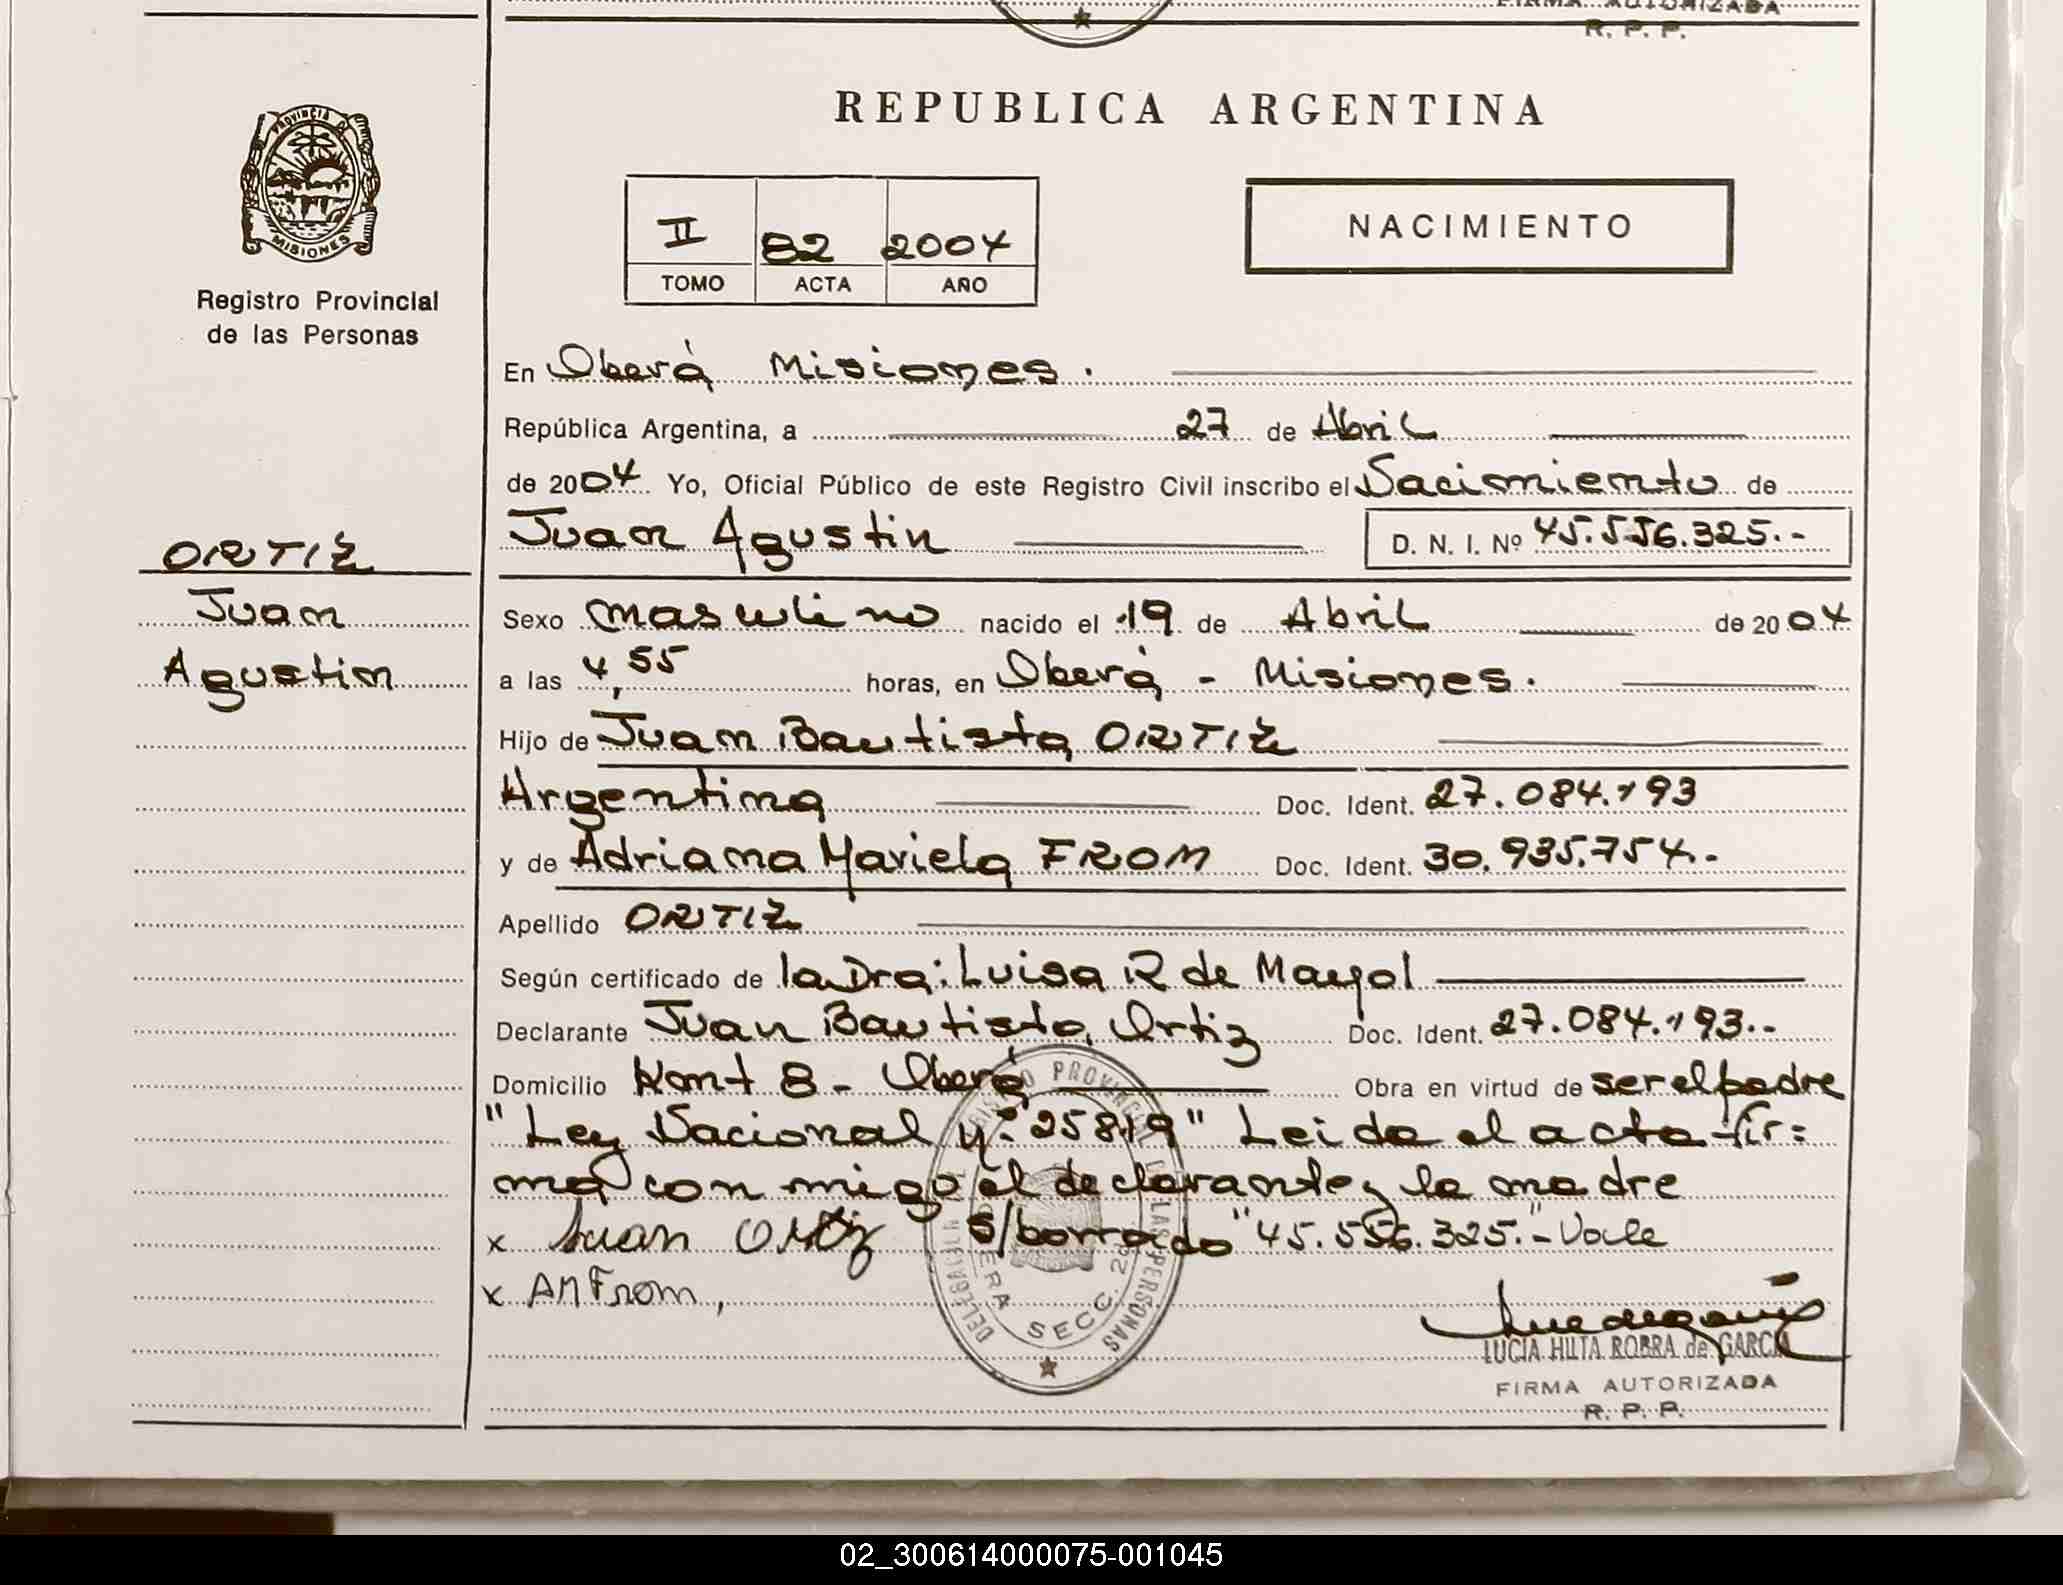 FIRMA AUTORIZADA
R. P. P.
PROVINCIA D
MISIONES
Registro Provincial
de las Personas
REPUBLICA ARGENTINA
II 82 2004
TOMO ACTA AÑO
NACIMIENTO
En Oberá Misiones.
República Argentina, a 27 de Abril
de 2004 Yo, Oficial Público de este Registro Civil inscribo el Nacimiento de
Juan Agustin D. N. I. Nº 45.556.325.-
ORTIZ
Juan
Agustin
Sexo masculino nacido el 19 de Abril de 2004
a las 4,55 horas, en Oberá - Misiones.
Hijo de Juan Bautista ORTIZ
Argentina Doc. Ident. 27.084.193
y de Adriana Mariela FROM Doc. Ident. 30.935.754.-
Apellido ORTIZ
Según certificado de la Dra: Luisa R de Mayol
Declarante Juan Bautista Ortiz Doc. Ident. 27.084.193.-
Domicilio Km 8 - Oberá Obra en virtud de ser el padre
"Ley Nacional Nº 25819" Leida el acta fir=
ma con migo el declarante y la madre
x Juan Ortiz S/borrado "45.556.325.-" Vale
x AMFrom,
REGISTRO PROVINCIAL DE LAS PERSONAS
SECC. 2
LUCIA HILTA ROBRA de GARCIA
FIRMA AUTORIZADA
R. P. P.
02_300614000075-001045